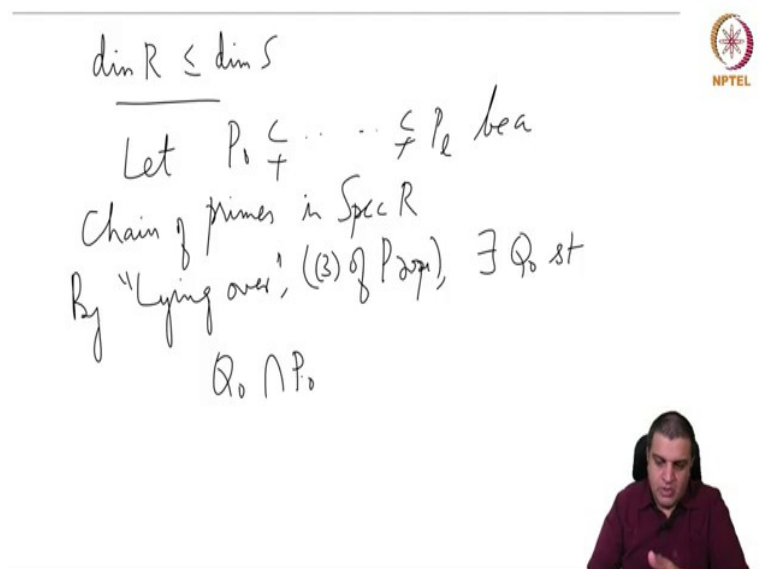 dim R ≤ dim S
NPTEL
Let P₀ ⊊ ⋯ ⋯ ⊊ Pₑ be a
Chain of primes in Spec R
By "Lying over", ((3) of Propn), ∃ Q₀ st
Q₀ ∩ P₀